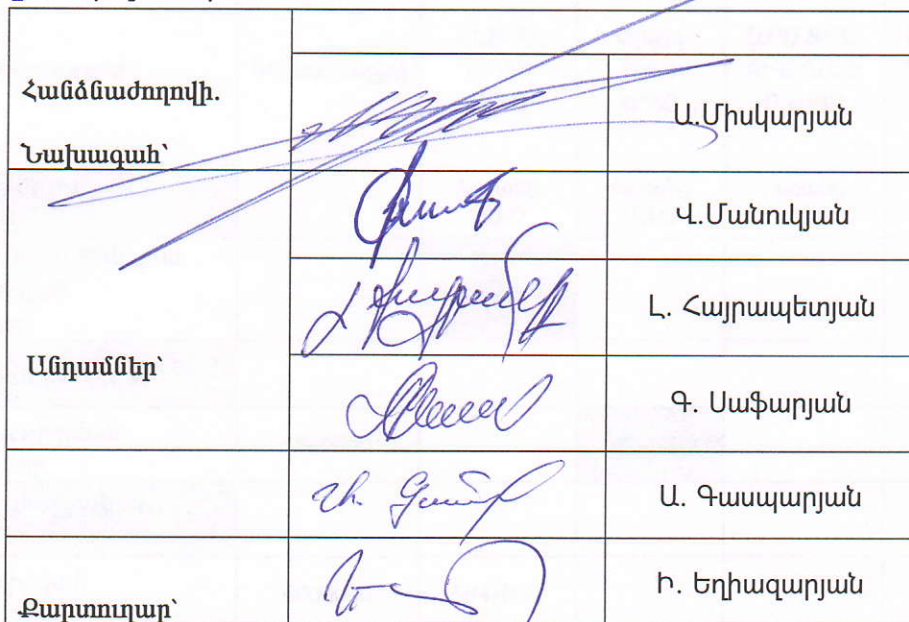 Հանձնաժողովի.
Նախագահ՝
Ա.Միսկարյան
Վ.Մանուկյան
Լ. Հայրապետյան
Անդամներ՝
Գ. Սաֆարյան
Ա. Գասպարյան
Քարտուղար՝
Ի. Եղիազարյան